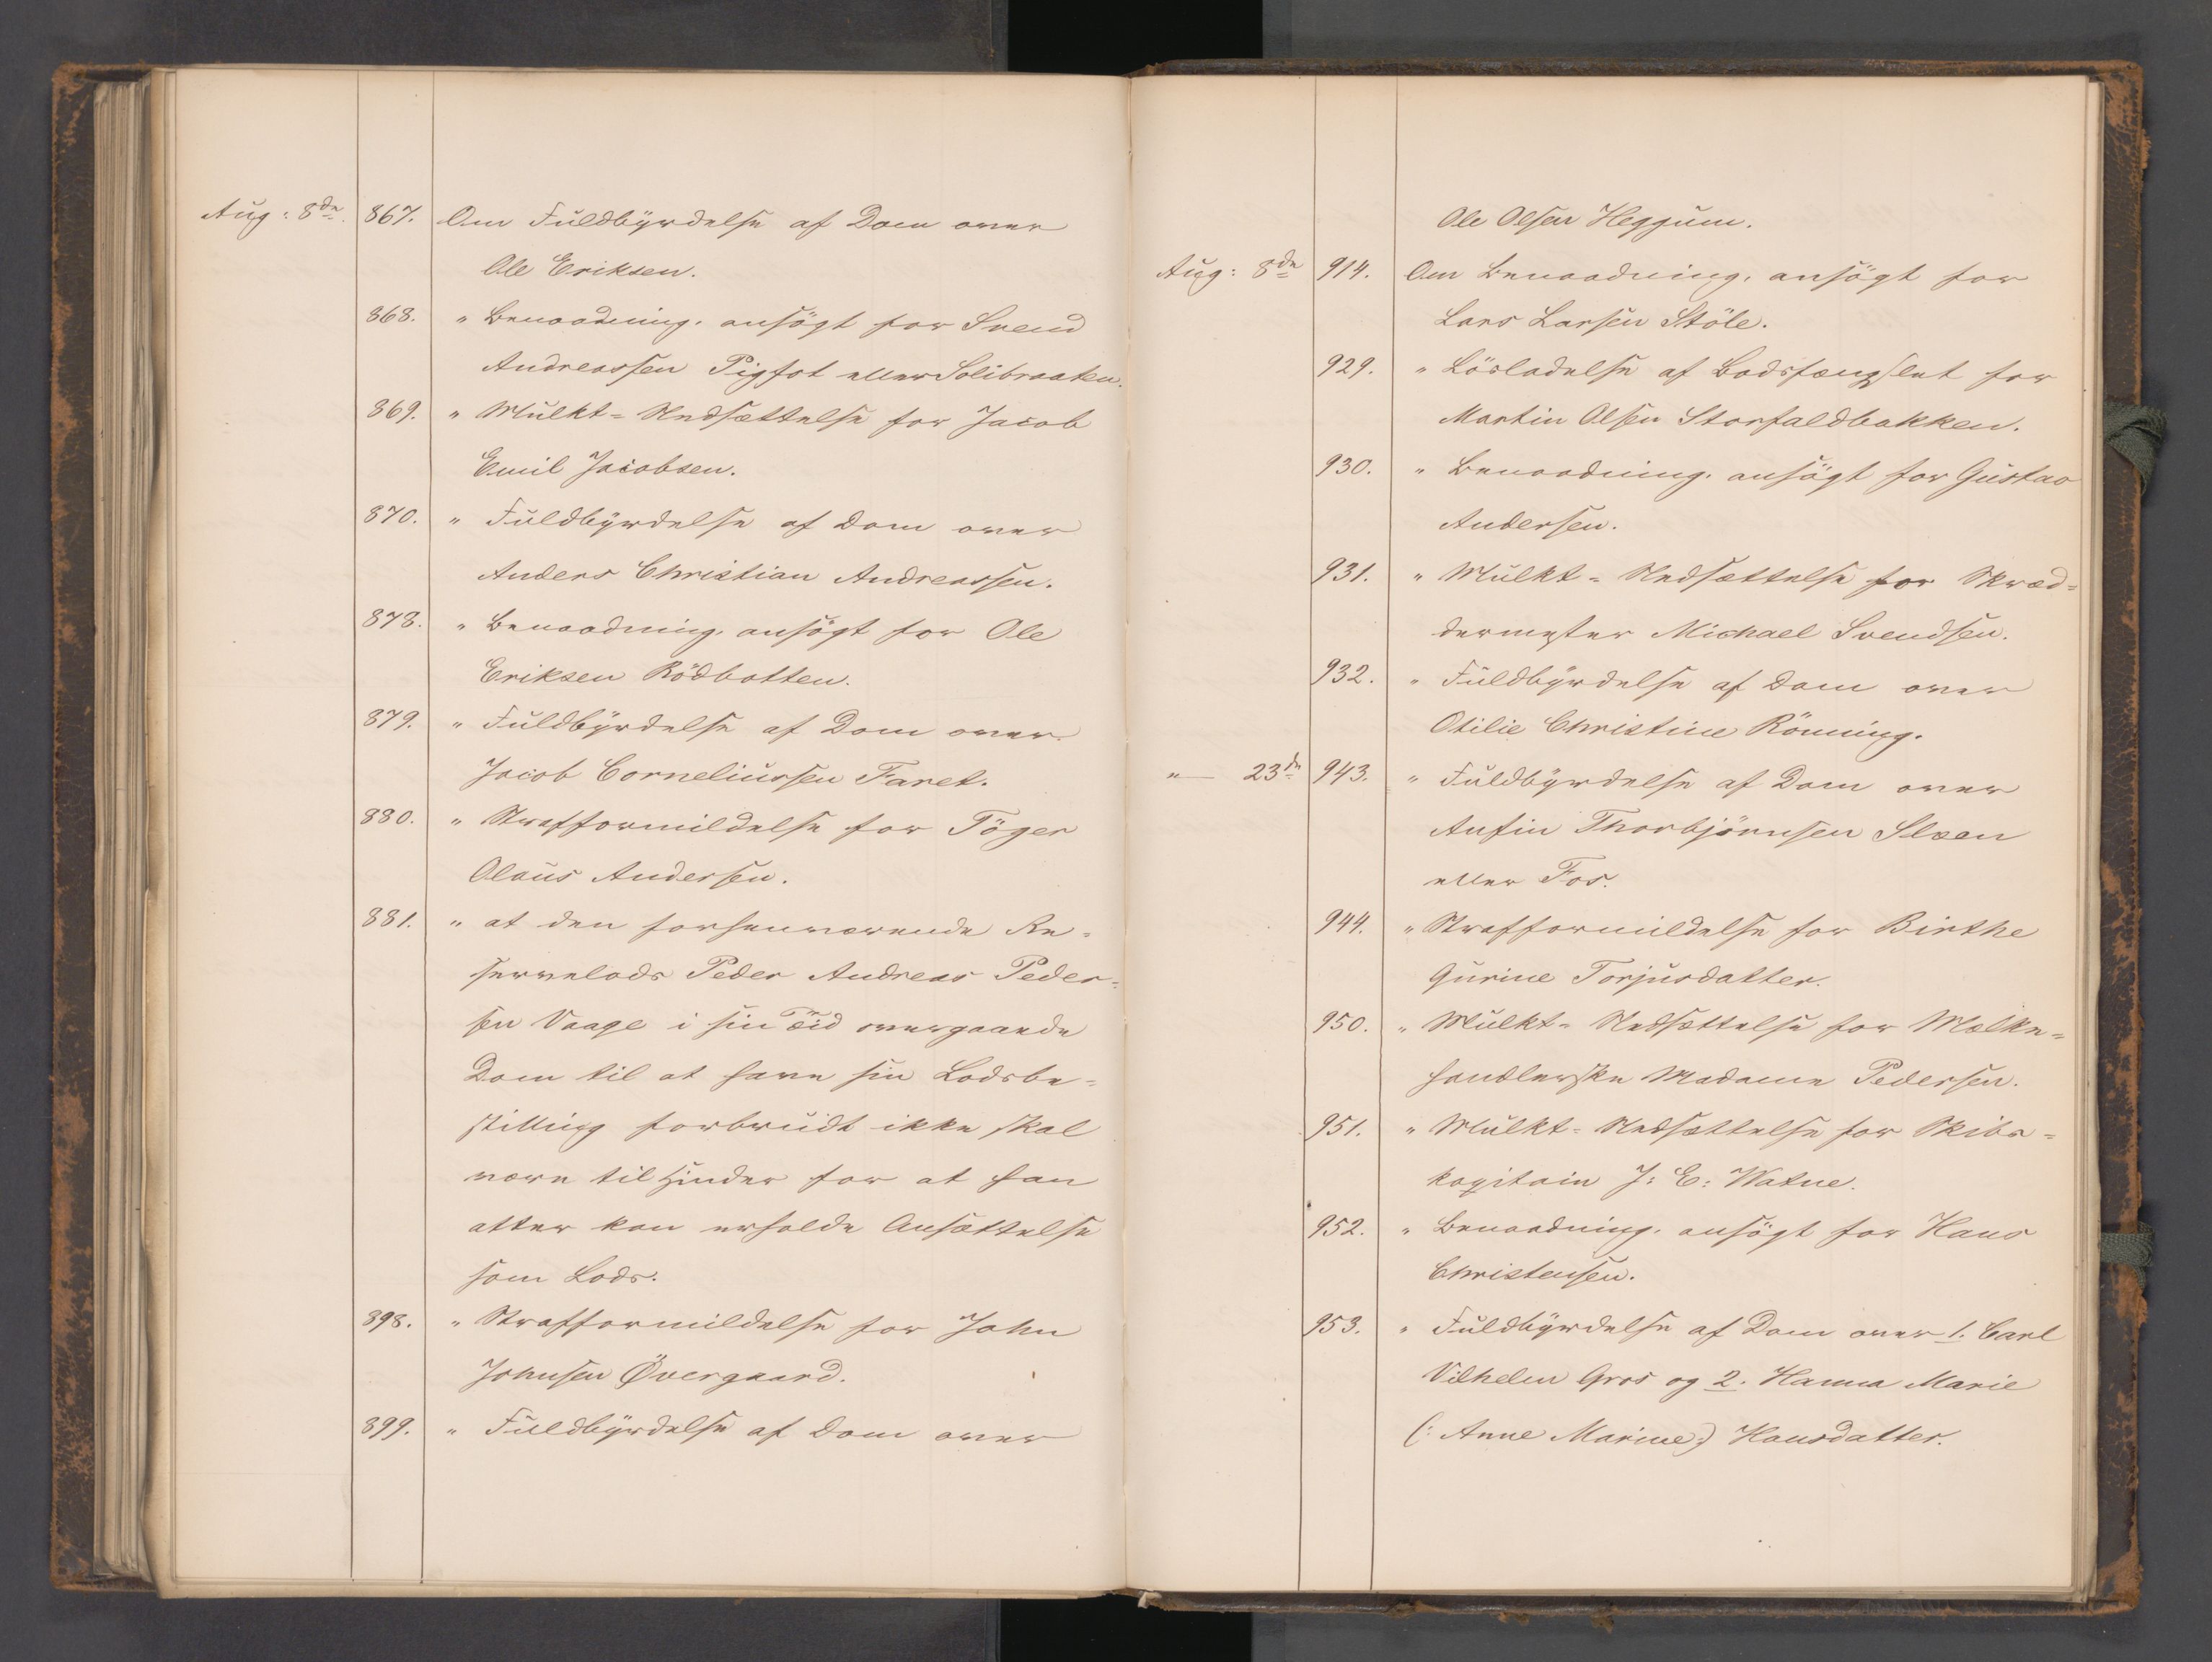 Aug: 8de. 867. Om Fuldbyrdelse af Dom over
Ole Eriksen.
868. " Benaadning, ansögt for Svend
Andreassen Pigfot eller Solibraaten.
869. " Mulkt-Nedsættelse for Jacob
Emil Jacobsen.
870. " Fuldbyrdelse af Dom over
Anders Christian Andreassen.
878. " Benaadning, ansögt for Ole
Eriksen Rödbotten.
879. " Fuldbyrdelse af Dom over
Jacob Corneliussen Faret.
880. " Strafformildelse for Töger
Olaus Andersen.
881. " at den forhenværende Re-
servelods Peder Andreas Peder-
sen Vaage i sin Tid overgaaede
Dom til at have sin Lodsbe-
stilling forbrudt ikke skal
være til Hinder for at han
atter kan erholde Ansættelse
som Lods.
898. " Strafformildelse for John
Johnsen Övergaard.
899. " Fuldbyrdelse af Dom over
Ole Olsen Heggum.
Aug: 8de 914. Om Benaadning, ansögt for
Lars Larsen Stöle.
929. " Lösladelse af Bodsfængslet for
Martin Olsen Storfaldbakken.
930. " Benaadning, ansögt for Gustav
Andersen.
931. " Mulkt-Nedsættelse for Skræd-
dermester Michael Svendsen.
932. " Fuldbyrdelse af Dom over
Otilie Christine Rönning.
"— 23de 943. " Fuldbyrdelse af Dom over
Anfin Thorbjörnsen Sleen
eller Fos.
944. " Strafformildelse for Birthe
Gurine Torjusdatter.
950. " Mulkt-Nedsættelse for Mælke-
handlerske Madame Pedersen.
951. " Mulkt-Nedsættelse for Skibs-
kapitain J: E: Watne.
952. " Benaadning, ansögt for Hans
Christensen.
953. " Fuldbyrdelse af Dom over 1. Carl
Vilhelm Gros og 2. Hanna Marie
(: Anne Marine :) Hansdatter.